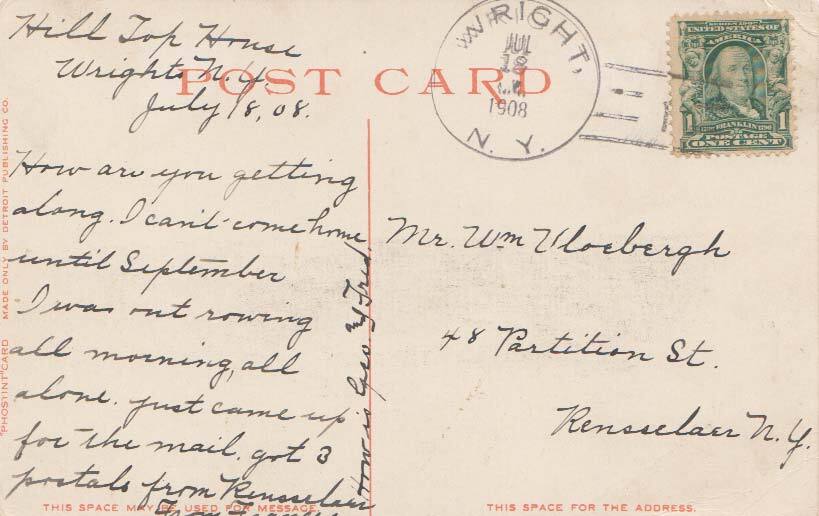 Hill Top House
Wrights N.Y.
July 18, 08.
POST CARD
How are you getting
along. I can't come home
until September
I was out rowing
all morning, all
alone. just came up
for the mail. got 3
postals from Rensselaer
From
How is Fred.
THIS SPACE MAY BE USED FOR MESSAGE.
"PHOSTINT" CARD MADE ONLY BY DETROIT PUBLISHING CO.
WRIGHT,
JUL
18
1908
N. Y.
SERIES 1902
UNITED STATES OF
AMERICA
FRANKLIN
1 POSTAGE 1
ONE CENT
Mr. Wm Vloebergh
48 Partition St.
Rensselaer N.Y.
THIS SPACE FOR THE ADDRESS.